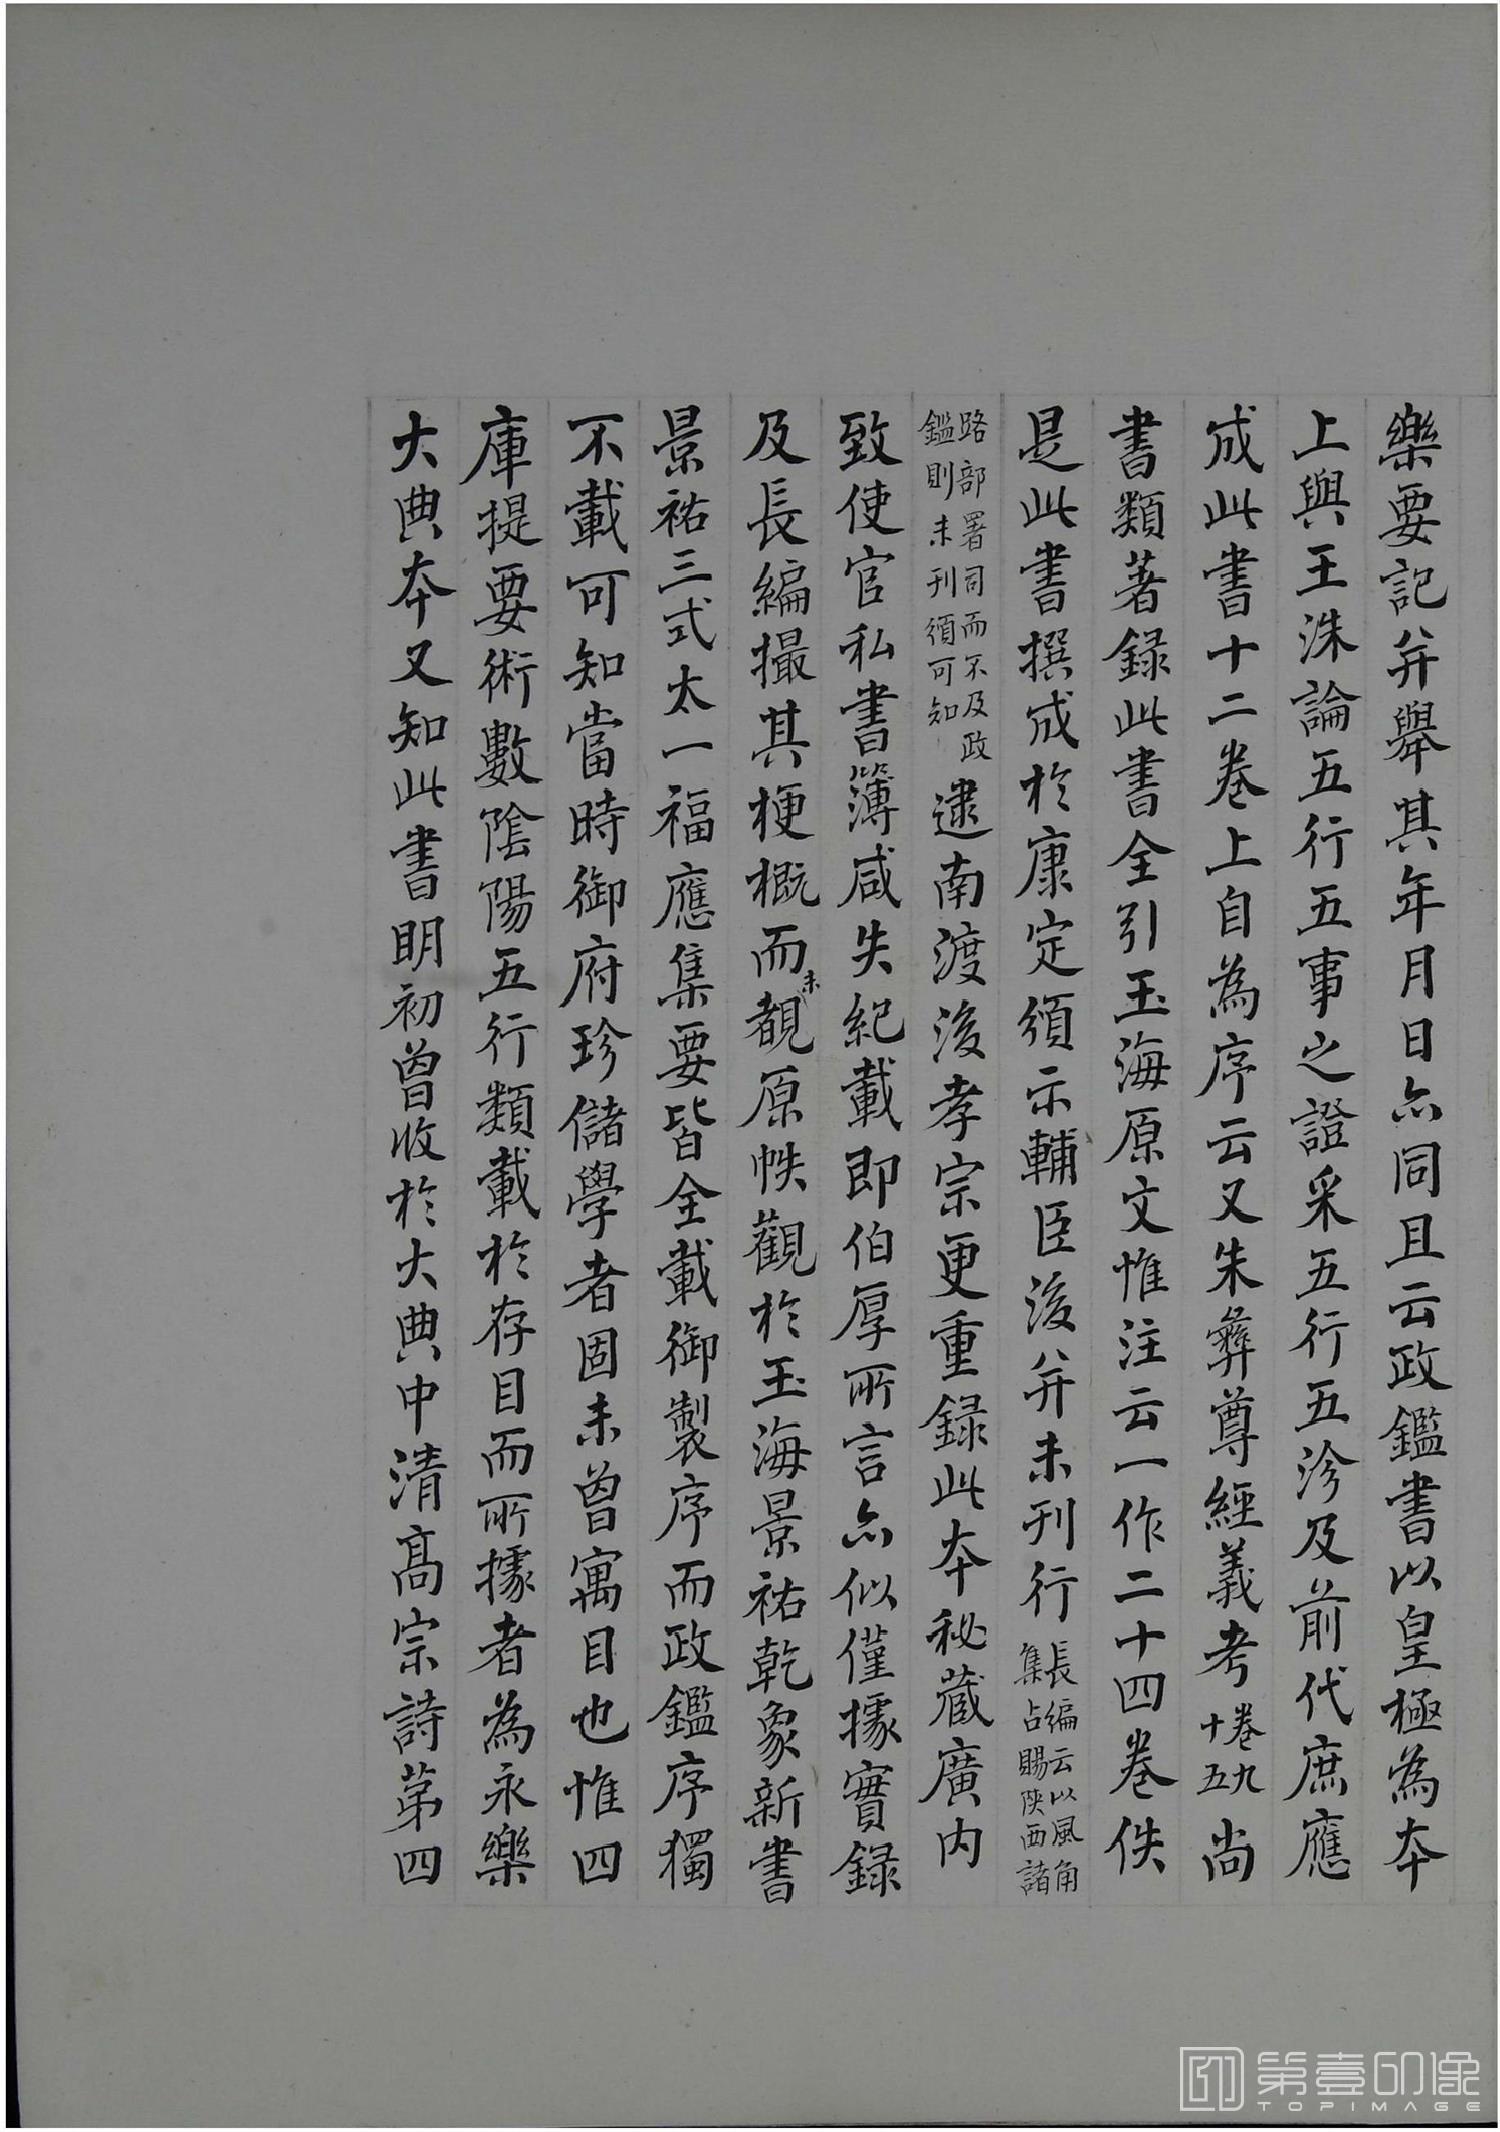 樂要記并舉其年月日亦同且云政鑑書以皇極為本
上與王洙論五行五事之證采五行五沴及前代庶應
成此書十二卷上自為序云又朱彝尊經義考卷九十五尚
書類著錄此書全引玉海原文惟注云一作二十四卷佚
是此書撰成於康定頒示輔臣後并未刊行長編云以風角集占賜陝西諸
路部署司而不及政鑑則未刊頒可知逮南渡後孝宗更重録此本秘藏廣內
致使官私書簿咸失紀載即伯厚所言亦似僅據實録
及長編撮其梗概而未覩原帙觀於玉海景祐乾象新書
景祐三式太一福應集要皆全載御製序而政鑑序獨
不載可知當時御府珍儲學者固未曾寓目也惟四
庫提要術數陰陽五行類載於存目而所據者為永樂
大典本又知此書明初曾收於大典中清高宗詩第四
第壹印像
TOPIMAGE